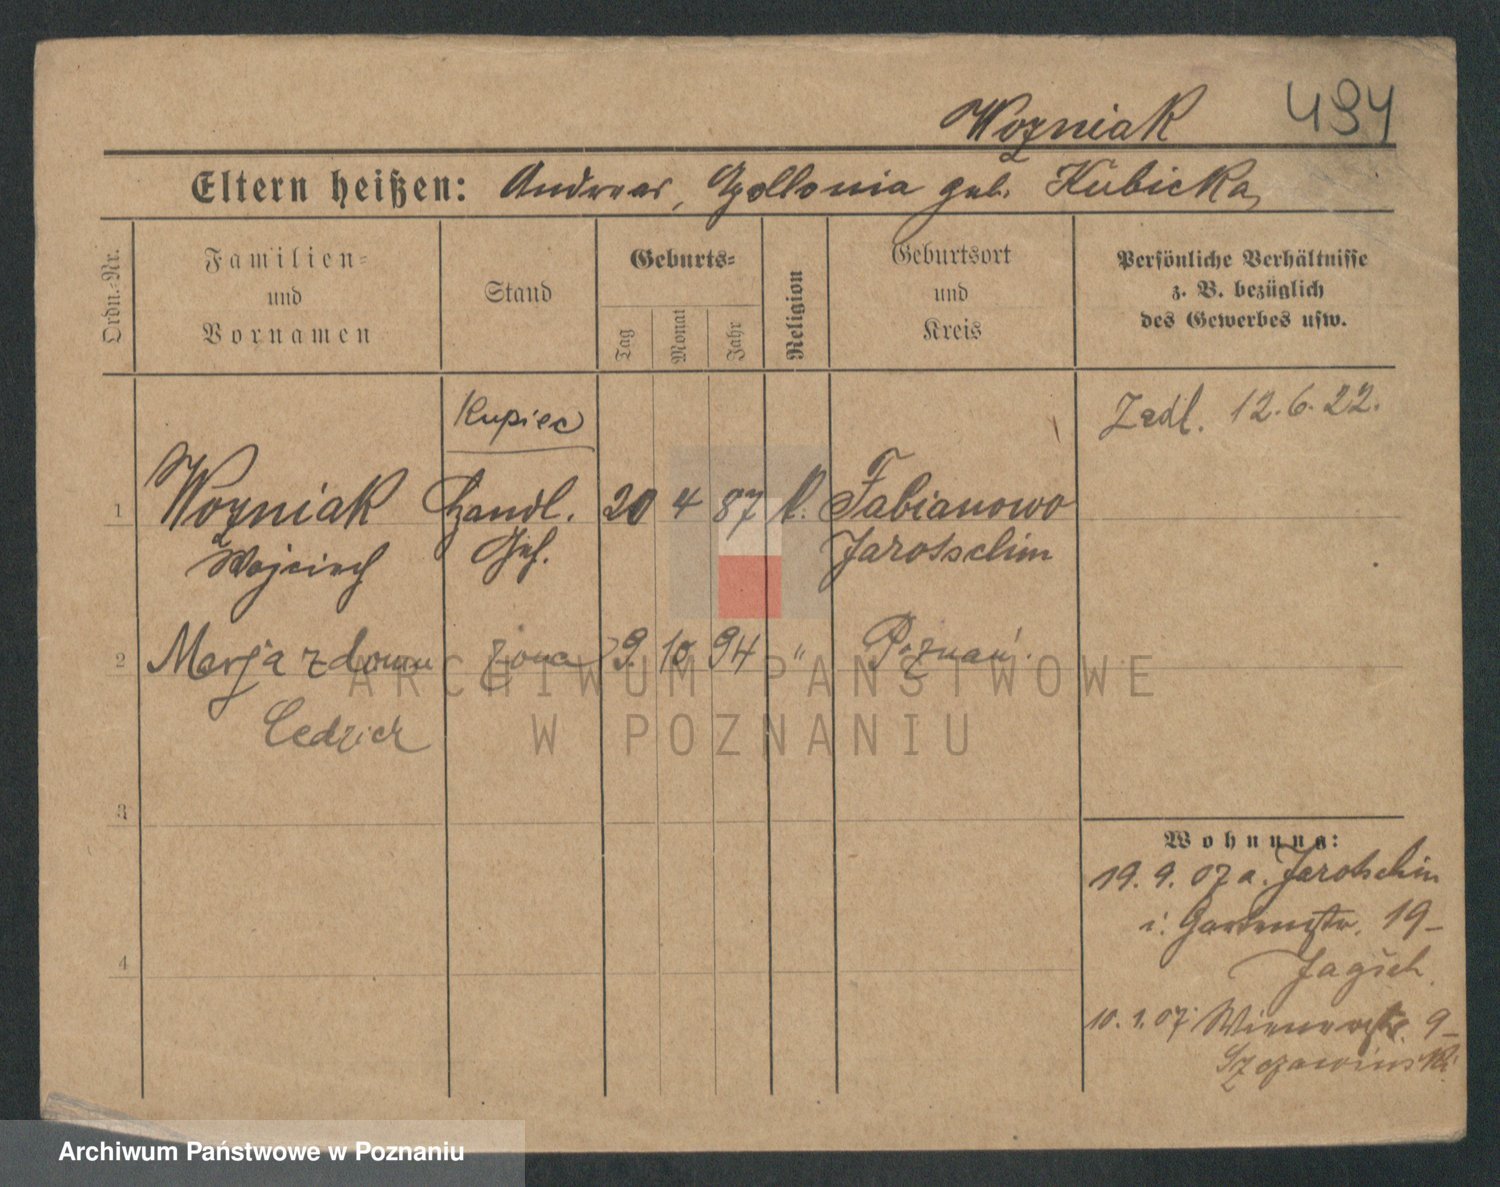 Wozniak 494
Eltern heißen: Andreas, Apollonia geb. Kubicka
Ordn.-Nr.
Familien-
und
Vornamen
Stand
Geburts-
Tag
Monat
Jahr
Religion
Geburtsort
und
Kreis
Persönliche Verhältnisse
z. B. bezüglich
des Gewerbes usw.
Kupiec
Zedl. 12.6.22.
1 Wozniak Handl. 20 4 87 k. Fabianowo
Wojciech Geh. Jarotschin
2 Marja z domu żona 9. 10 94 " Poznań.
Cedzich
3
4
Wohnung:
19. 9. 07 a. Jarotschin
i. Gartenstr. 19-
Jagsch.
10. 1. 07 Wienerstr. 9-
Szczawinski
ARCHIWUM PAŃSTWOWE
W POZNANIU
Archiwum Państwowe w Poznaniu